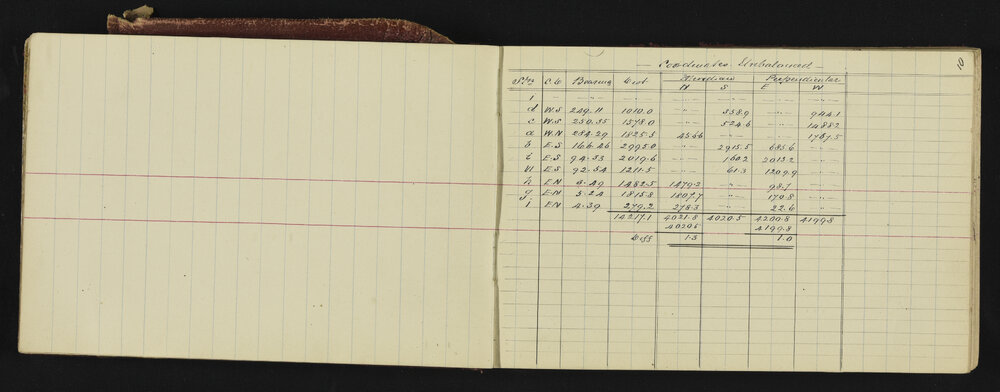 10
Coordinates Unbalanced
Stn C.B Bearing Dist Meridian Perpendicular
N S E W
1 — — — — — — —
d W.S 249.11 1010.0 —"— 358.9 —"— 944.1
c W.S 250.35 1578.0 —"— 524.6 —"— 1488.2
a W.N 284.29 1825.5 456.6 —"— —"— 1767.5
b E.S 166.46 2995.0 —"— 2915.5 685.6 —"—
t E.S 94.33 2019.6 —"— 160.2 2013.2 —"—
VI E.S 92.54 1211.5 —"— 61.3 1209.9 —"—
h E.N 3.49 1482.5 1479.2 —"— 98.7 —"—
g E.N 5.24 1815.8 1807.7 —"— 170.8 —"—
1 E.N 4.39 279.2 278.3 —"— 22.6 —"—
14217.1 4021.8 4020.5 4200.8 4199.8
4020.5 4199.8
Diff 1.3 1.0